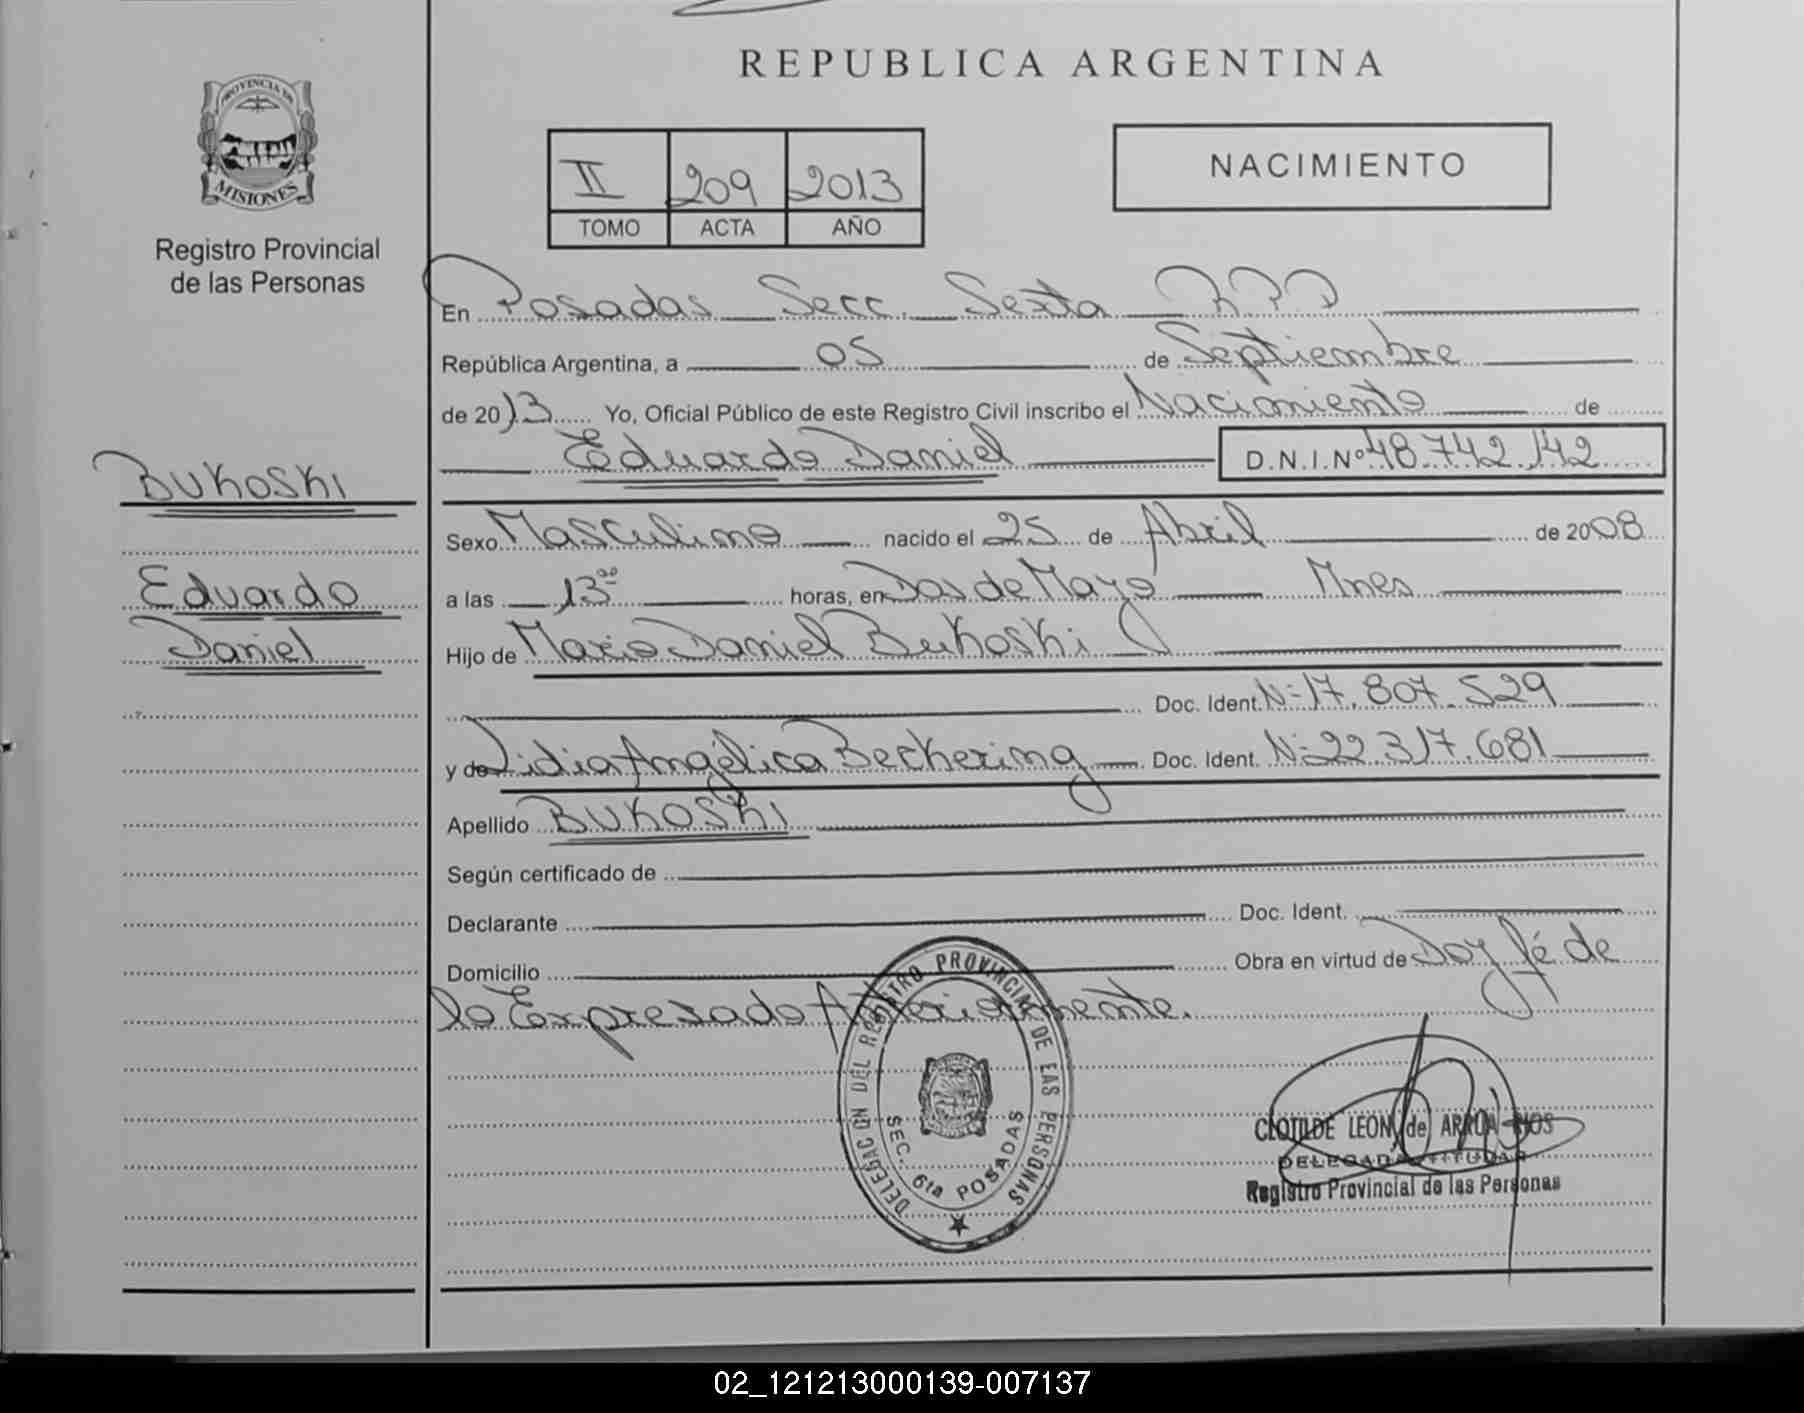 REPUBLICA ARGENTINA
PROVINCIA DE
MISIONES
Registro Provincial
de las Personas
II 209 2013
TOMO ACTA AÑO
NACIMIENTO
En Posadas Secc. Sexta R.P.P
República Argentina, a 05 de Septiembre
de 2013 Yo, Oficial Público de este Registro Civil inscribo el Nacimiento de
Eduardo Daniel D.N.I.Nº 48.742.142
BUKOSKI
Eduardo
Daniel
Sexo Masculino nacido el 25 de Abril de 2008
a las 13⁰⁰ horas, en Dos de Mayo Mnes
Hijo de Mario Daniel Bukoski
Doc. Ident. Nº 17.807.529
y de Lidia Angélica Beckering Doc. Ident. Nº 22.317.681
Apellido BUKOSKI
Según certificado de
Declarante Doc. Ident.
Domicilio Obra en virtud de Doy fé de
lo Expresado Anteriormente.
DELEGACION DEL REGISTRO PROVINCIAL DE LAS PERSONAS
SEC. 6ta POSADAS
CLOTILDE LEON de ARRUA RIOS
DELEGADA TITULAR
Registro Provincial de las Personas
02_121213000139-007137